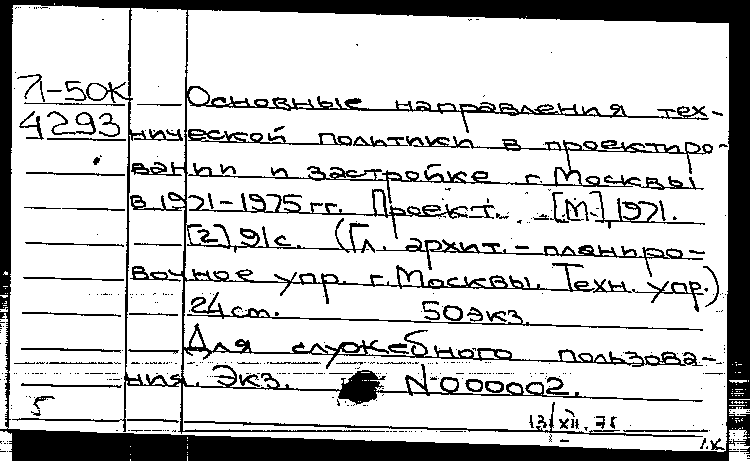 Л-50К Основные направления тех-
4293 нической политики в проектиро-
вании и застройке г. Москвы
в 1971-1975гг. Проект. [М.], 1971.
[2], 91с. (Гл. архит.-планиро-
вочное упр. г. Москвы. Техн. упр.)
24см. 50экз.
Для служебного пользова-
ния. Экз. N 000002.
5
13/XII.